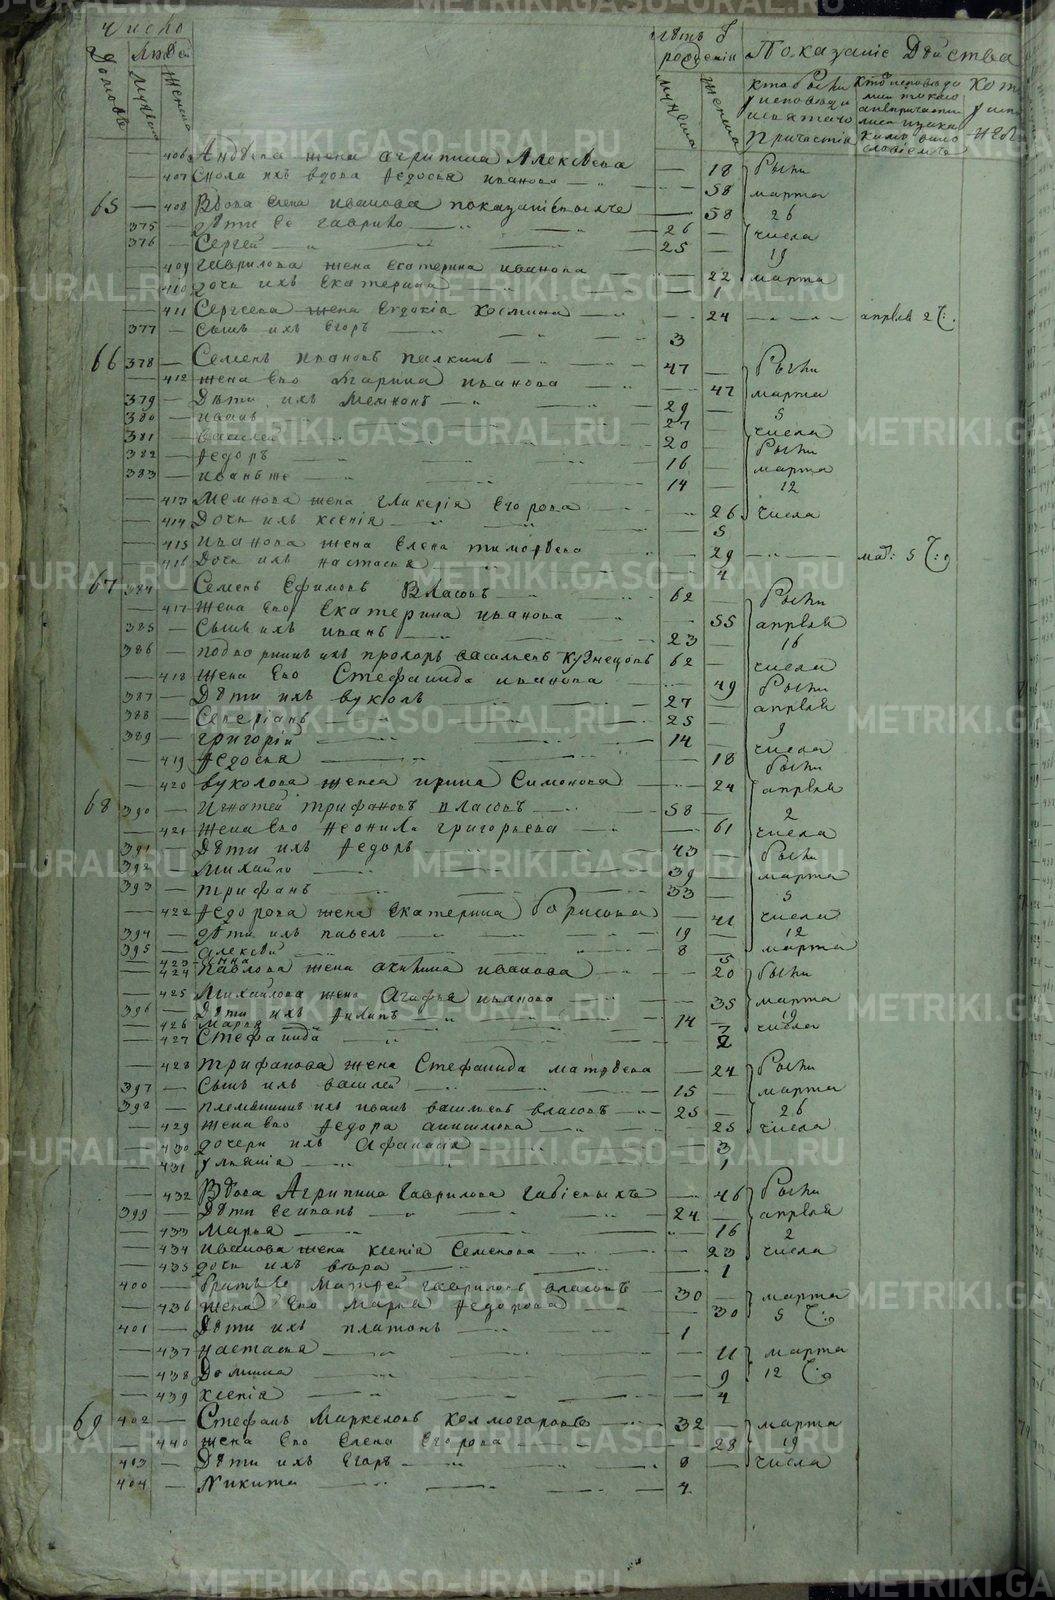 Число
Людей
Домовъ
Мужеска
Женска
Лѣтъ
рожденія
мужеска
женска
Показаніе Дѣйства
кто были
у исповѣди
и святаго
Причастія
406 жена Агрипина Алексѣева — 18 были
407 Сноха ихъ вдова Федосья Иванова — 58 марта
65 — 408 Вдова Елена Иванова — 58 26
375 — дѣти ее Гаврило — 26 — числа
376 — Сергей — 25 19
— 409 Гаврилова жена Екатерина Иванова — 22 марта
— 410 дочь ихъ Екатерина — 1
— 411 Сергеева жена Евдокія Космина — 24 апрѣля 2 Ч:
377 — Сынъ ихъ Егоръ 3
66 378 — Семенъ Ивановъ Пилкинъ 47 — были
— 412 жена Его Марина Иванова — 47 марта
379 — Дѣти ихъ Мемнонъ 29 — 5
380 — Иванъ 27 — числа
381 — Василей 20 были
382 — Федоръ 16 — марта
383 — Иванъ же 14 — 12
— 413 Мемнова жена Гликерія Егорова 26 числа
— 414 Дочь ихъ Ксенія 5
— 415 Иванова жена Елена Тимофѣева — 29 мар: 5 Ч:
— 416 Дочь ихъ Настасья 4
67 384 — Семенъ Ефимовъ Власовъ 62 — были
— 417 Жена Его Екатерина Иванова — 55 апрѣля
385 — Сынъ ихъ Иванъ 23 — 16
386 — Прохоръ Васильевъ Кузнецовъ 62 — числа
— 418 Жена Его Стефанида Иванова — 49 были
387 — Дѣти ихъ Вуколъ 27 — апрѣля
388 — Северіанъ 25 — 9
389 — Григорій 14 — числа
— 419 Федосья — 18 были
— 420 Вуколова жена Ирина Симонова — 24 апрѣля
68 390 — Игнатей Трифановъ Власовъ 58 — 2
— 421 Жена Его Неонила Григорьева — 61 числа
391 — Дѣти ихъ Федоръ 43 — были
392 — Михайло 39 — марта
393 — Трифанъ 33 — 5
— 422 Федорова жена Екатерина Борисова — 41 числа
394 — дѣти ихъ Павелъ 19 — 12
395 — Алексѣй 8 — марта
— 423 Анна 5
— 424 Павлова жена Акилина Иванова — 20 были
— 425 Михайлова жена Агафья Иванова — 35 марта
396 — Дѣти ихъ Филипъ 14 — 19
— 426 Марья 7 числа
— 427 Стефанида 2
— 428 Трифанова жена Стефанида Матвѣева — 24 были
397 — Сынъ ихъ Василей 15 — марта
398 — Племянникъ ихъ Иванъ Васильевъ Власовъ 25 — 26
— 429 Жена Его Федора Анисимова — 25 числа
— 430 дочери ихъ Афанасія 3
— 431 Ульянія 1
— 432 Вдова Агрипина Гаврилова — 46 были
399 — Дѣти Ее Иванъ 24 — апрѣля
— 433 Марья 16 2
— 434 Иванова жена Ксенія Семенова — 23 числа
— 435 дочь ихъ Вѣра 1
400 — Братъ Матфей Гавриловъ Власовъ 30 — марта
— 436 Жена Его Марья Федорова — 30 5 Ч:
401 — Дѣти ихъ Платонъ 1
— 437 Настасья — 11 марта
— 438 Домна — 9 12 Ч:
— 439 Ксенія — 4
69 402 — Стефанъ Маркеловъ Колмогоровъ 32 — марта
— 440 жена Его Елена Егорова — 28 19
403 — Дѣти ихъ Егоръ 8 — числа
404 — Никита 4
METRIKI.GASO-URAL.RU